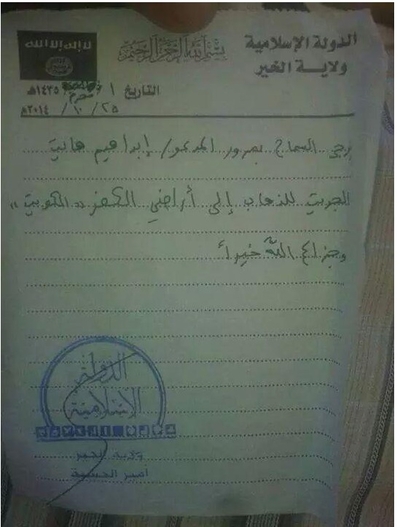 لا إله إلا الله
بسم الله الرحمن الرحيم
الدولة الإسلامية
ولاية الخير
التاريخ ١ / محرم / ١٤٣٥هـ
٢٥ / ١٠ / ٢٠١٤م
يرجى السماح بمرور المدعو / إبراهيم هانيت
للذهاب إلى أراضي الكفر " الكويت "
وجزاكم الله خيراً
الدولة
الإسلامية
ولاية الخير
أمير الحسبة